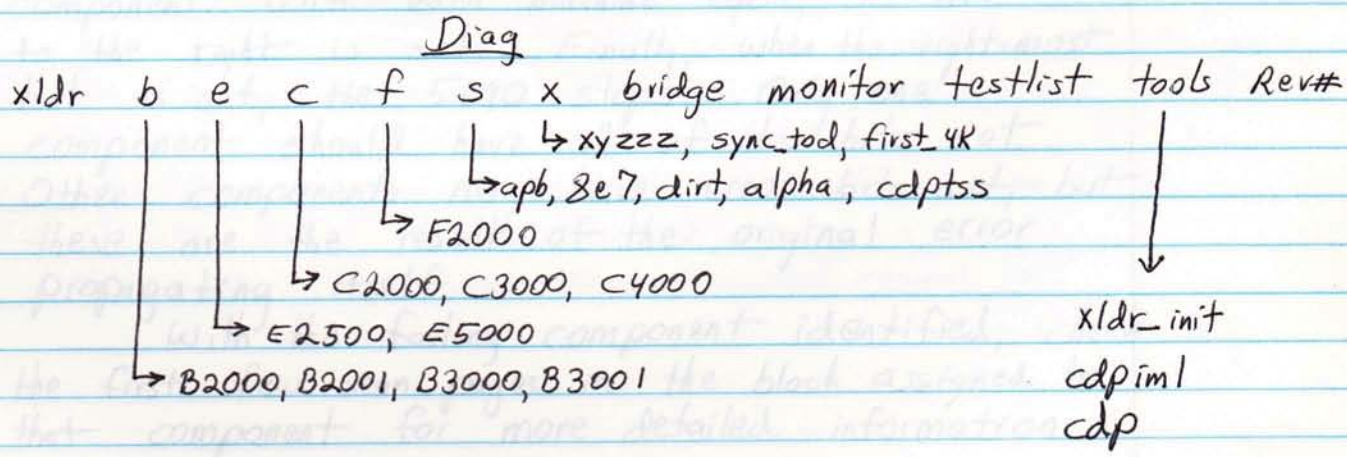 Diag
xldr b e c f s x bridge monitor testlist tools Rev#
xyzzz, sync_tod, first_4K
apb, 8e7, dirt, alpha, cdptss
F2000
C2000, C3000, C4000
E2500, E5000
xldr_init
B2000, B2001, B3000, B3001
cdpiml
cdp